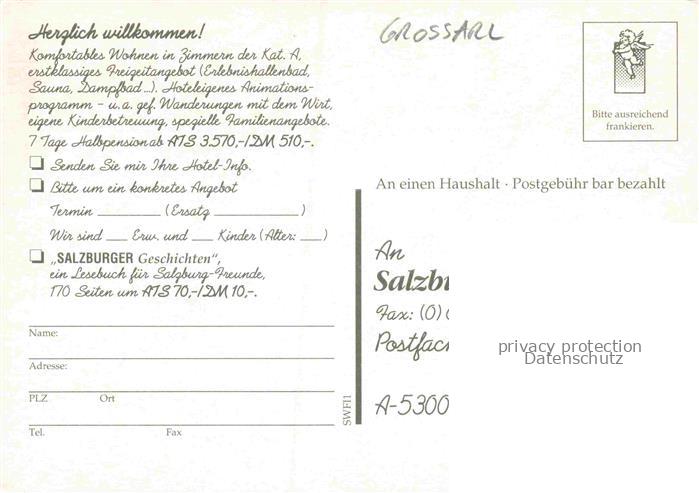 Herzlich willkommen!
Komfortables Wohnen in Zimmern der Kat. A,
erstklassiges Freizeitangebot (Erlebnishallenbad,
Sauna, Dampfbad ...). Hoteleigenes Animations-
programm – u.a. gef. Wanderungen mit dem Wirt,
eigene Kinderbetreuung, spezielle Familienangebote.
7 Tage Halbpension ab ATS 3.570,-/DM 510,-.
Senden Sie mir Ihre Hotel-Info.
Bitte um ein konkretes Angebot
Termin ________ (Ersatz ________)
Wir sind ___ Erw. und ___ Kinder (Alter: ___)
„SALZBURGER Geschichten",
ein Lesebuch für Salzburg-Freunde,
170 Seiten um ATS 70,-/DM 10,-.
Name:
Adresse:
PLZ Ort
Tel. Fax
SWFI1
GROSSARL
Bitte ausreichend
frankieren.
An einen Haushalt · Postgebühr bar bezahlt
An
Salzbu
Fax: (0)
Postfac
A-5300
privacy protection
Datenschutz